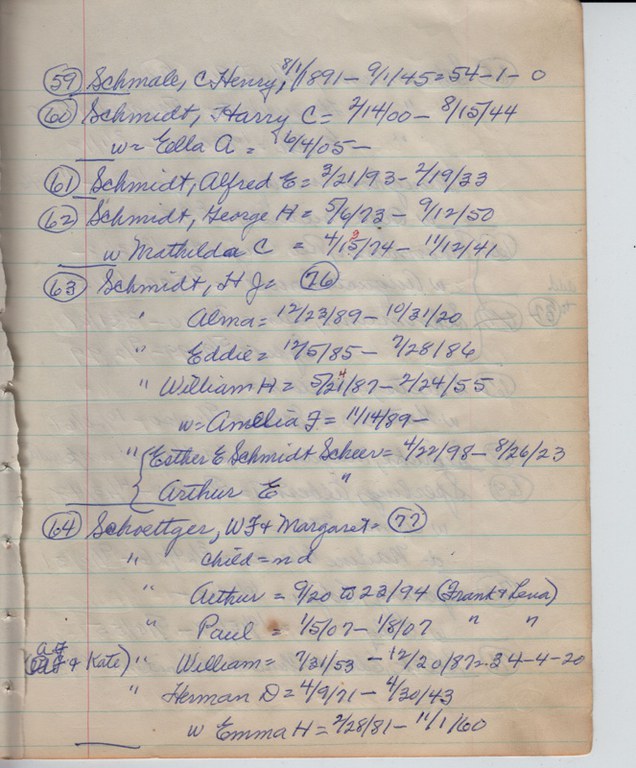 (59) Schmale, C Henry, 8/1/1891 - 9/1/45 = 54-1-0
(60) Schmidt, Harry C = 2/14/00 - 8/15/44
w = Ella A = 6/4/05 -
(61) Schmidt, Alfred E = 3/21/93 - 2/19/33
(62) Schmidt, George H = 5/6/73 - 9/12/50
w Mathilda C = 4/15/74 - 11/12/41
(63) Schmidt, H J = (76)
" Alma = 12/23/89 - 10/31/20
" Eddie = 12/5/85 - 7/28/86
" William H = 5/21/87 - 2/24/55
w = Amelia F = 11/14/89 -
" Esther E Schmidt Scheer = 4/22/98 - 8/26/23
Arthur E "
(64) Schoettger, W F & Margaret = (77)
" child = n d
" Arthur = 9/20 to 23/94 (Frank & Lena)
" Paul = 1/5/07 - 1/8/07 " "
(A F & Kate) " William = 7/31/53 - 12/20/87 = 34-4-20
" Herman D = 4/9/71 - 4/30/43
w Emma H = 2/28/81 - 11/1/60